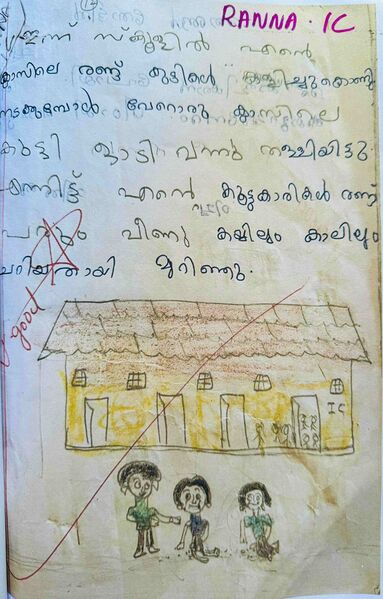 RANNA . 1C
ഇന്ന് സ്കൂളിൽ എന്റെ
ക്ലാസിലെ രണ്ട് കുട്ടികൾ കളിച്ചുകൊണ്ടു
നടക്കുമ്പോൾ വേറൊരു ക്ലാസിലെ
കുട്ടി ഓടി വന്നു തള്ളിയിട്ടു.
എന്നിട്ട് എന്റെ കൂട്ടുകാരികൾ രണ്ട്
പേരും വീണു കയ്യിലും കാലിലും
ചെറിയതായി മുറിഞ്ഞു.
good
1C